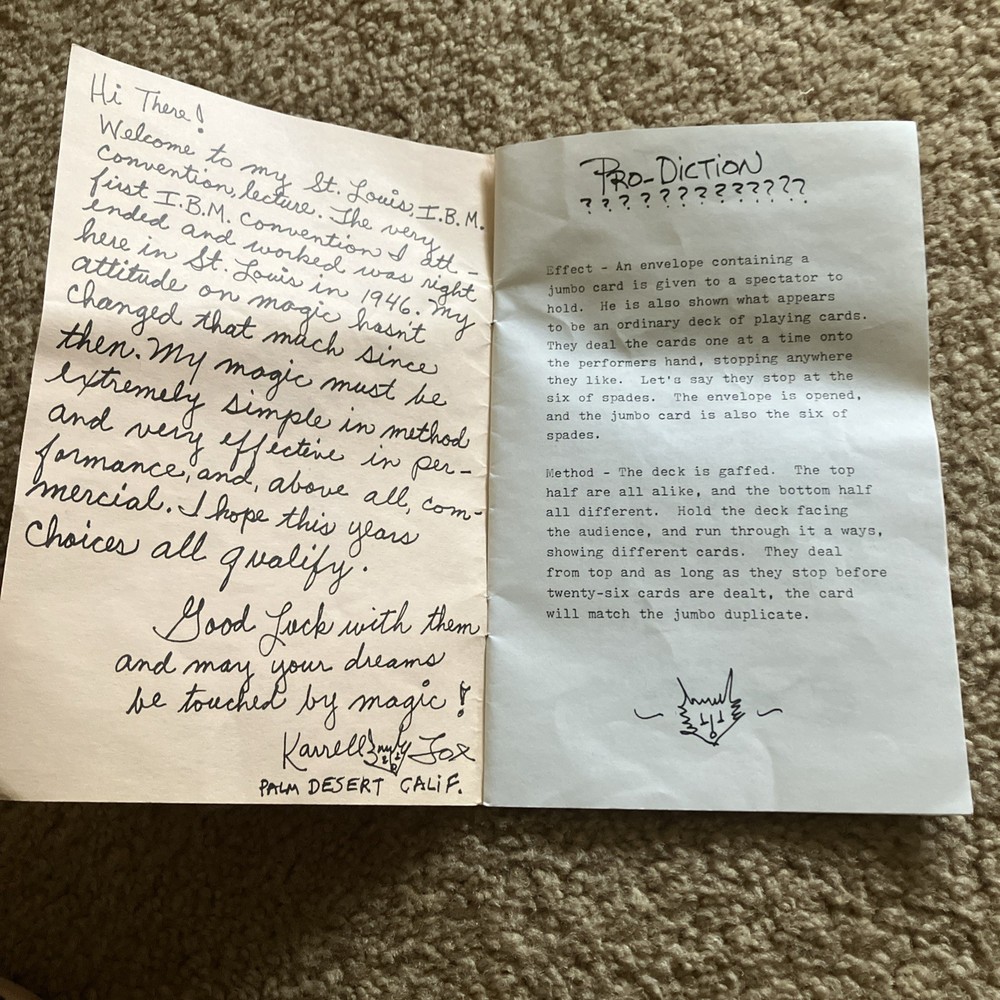 Hi There!
Welcome to my St. Louis, I.B.M.
Convention, lecture. The very
first I.B.M. Convention I att-
ended and worked was right
here in St. Louis in 1946. My
attitude on magic hasn't
changed that much since
then. My magic must be
extremely simple in method
and very effective in per-
formance, and, above all, com-
mercial. I hope this years
choices all qualify.
Good Luck with them
and may your dreams
be touched by magic!
Karrell Fox
PALM DESERT CALIF.
PRO-DICTION
? ? ? ? ? ? ? ? ? ? ?
Effect - An envelope containing a
jumbo card is given to a spectator to
hold. He is also shown what appears
to be an ordinary deck of playing cards.
They deal the cards one at a time onto
the performers hand, stopping anywhere
they like. Let's say they stop at the
six of spades. The envelope is opened,
and the jumbo card is also the six of
spades.
Method - The deck is gaffed. The top
half are all alike, and the bottom half
all different. Hold the deck facing
the audience, and run through it a ways,
showing different cards. They deal
from top and as long as they stop before
twenty-six cards are dealt, the card
will match the jumbo duplicate.